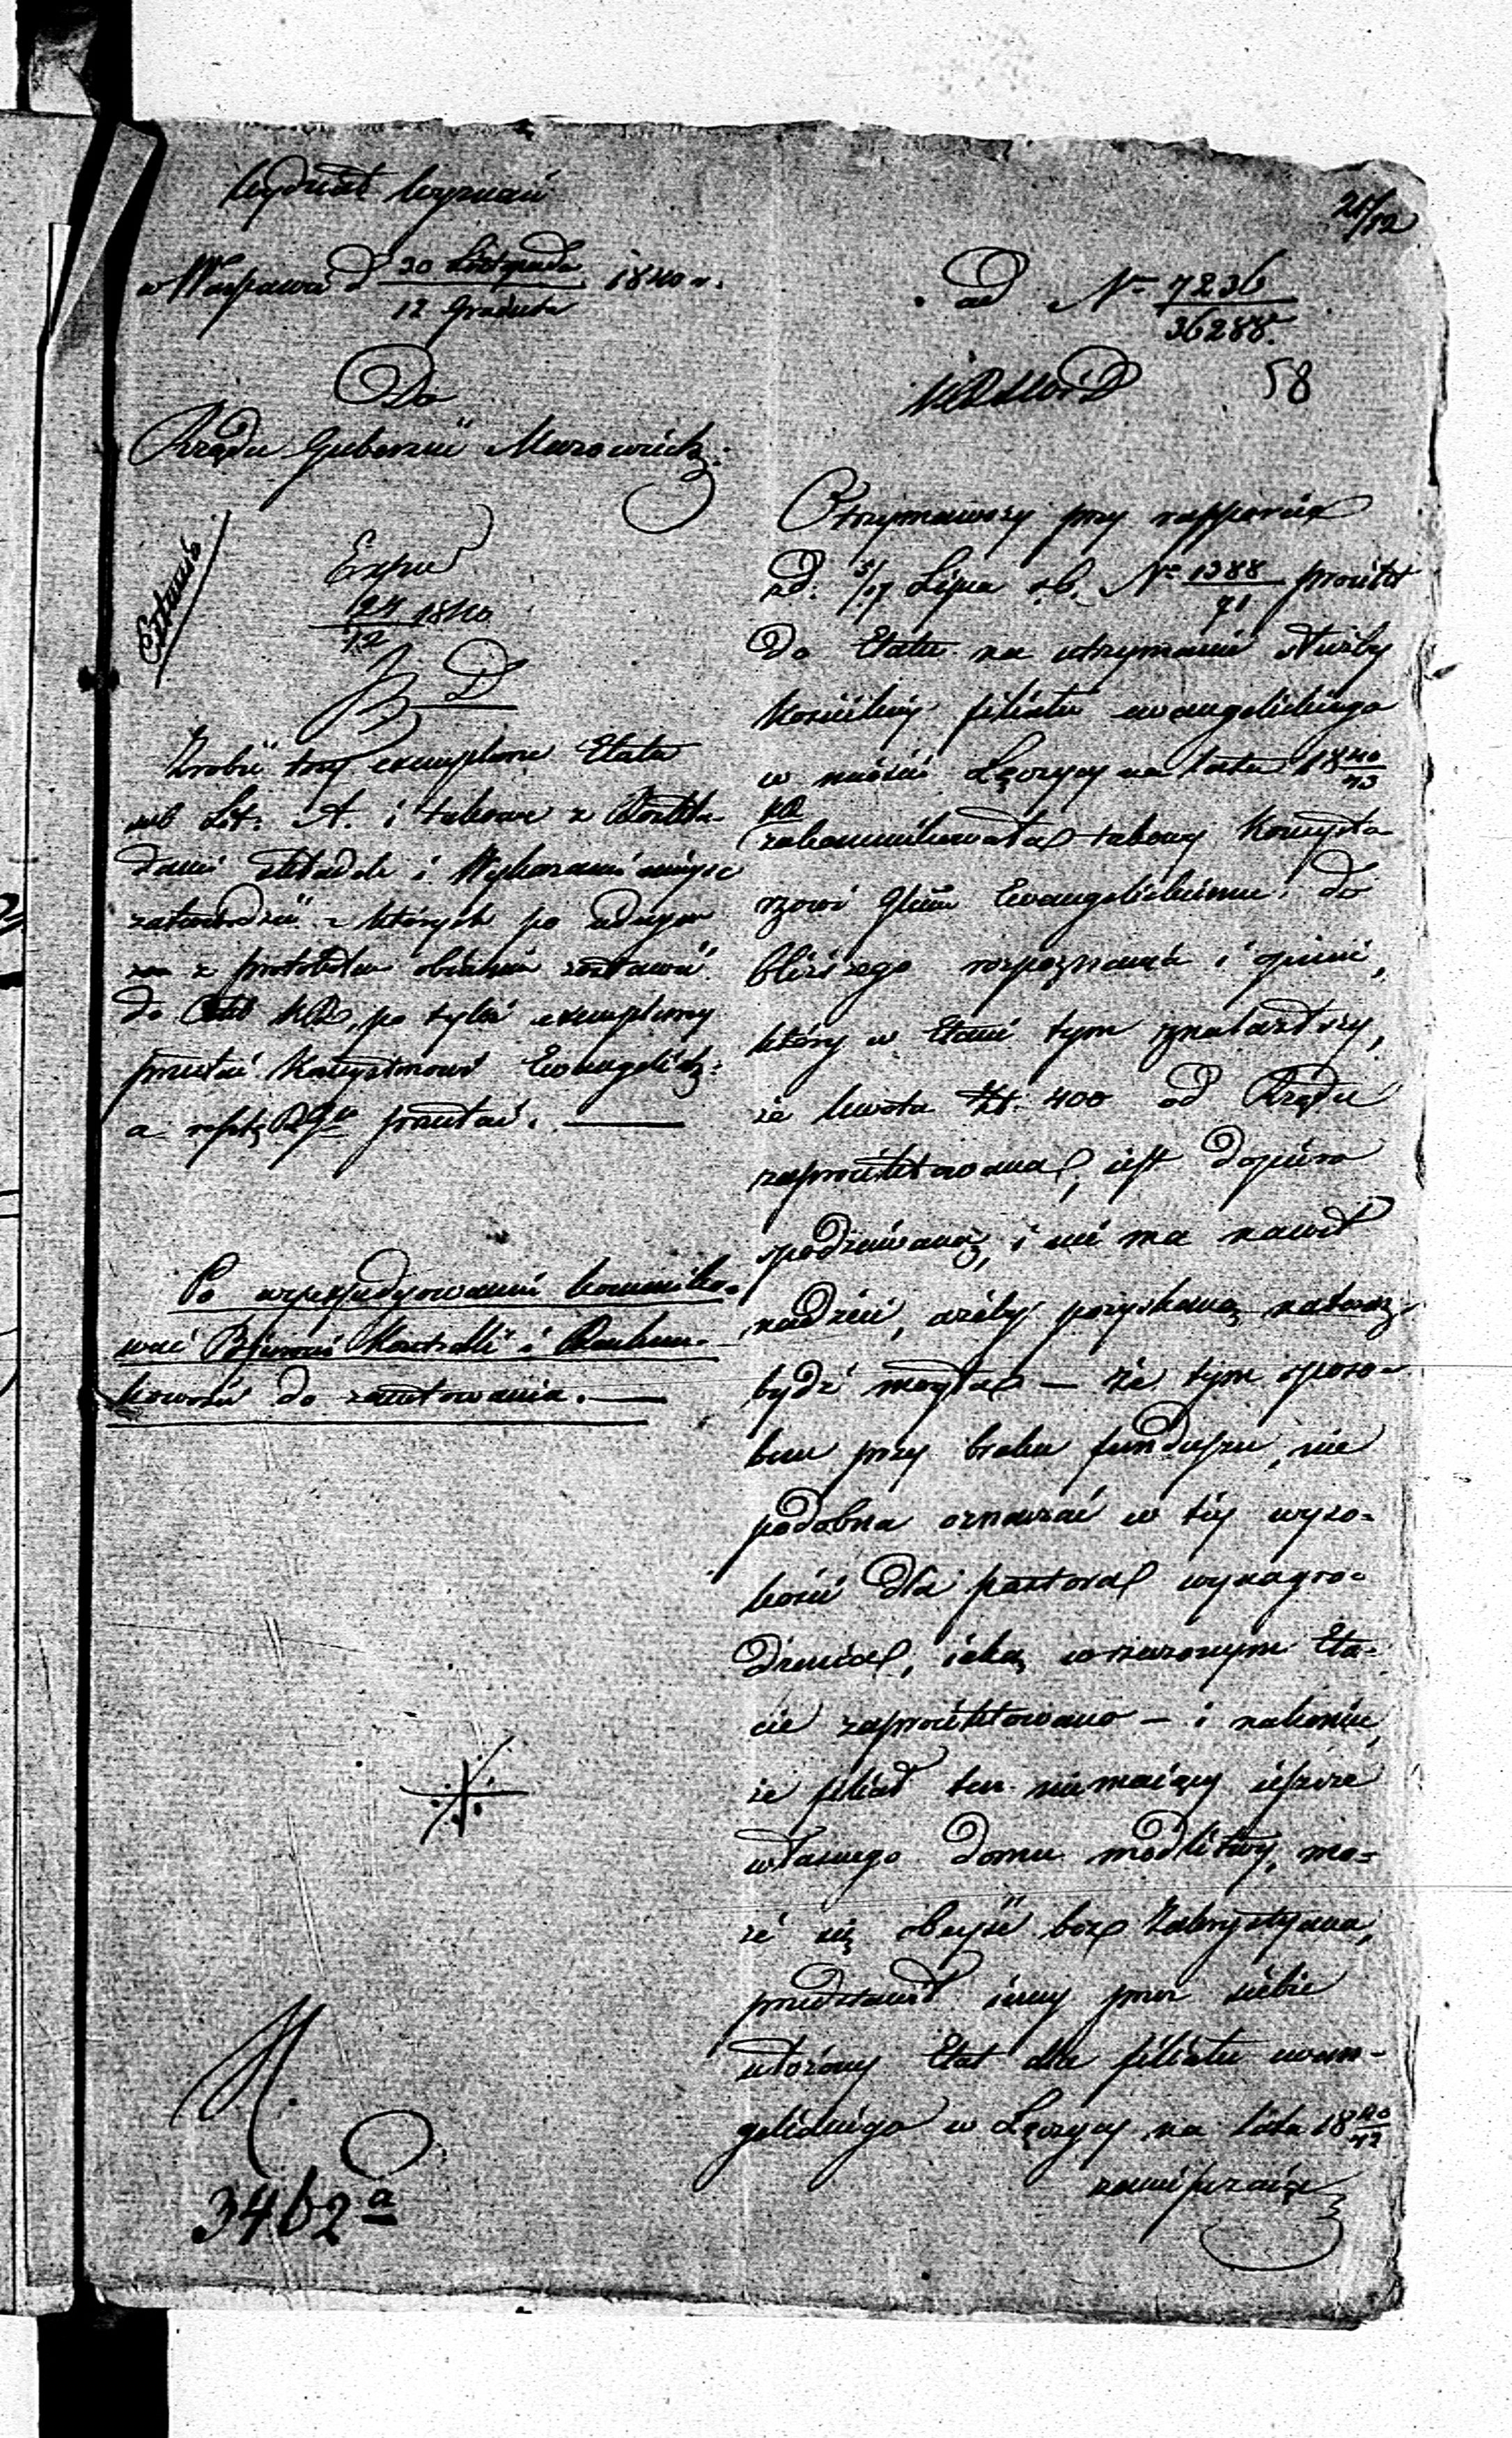 Wydział Wyznań
w Warszawie d 30 Listopada / 12 Grudnia 1840 r.
Do
Rządu Gubernii Mazowieck:
Exped
124/12 1840
Zrobić trzy exemplarze Etatu
sub Lit: A. i takowe z Rozkła-
dami składek i Wykazami miejsc
zatwierdzić z których po jednym
z protokółem obiektu zostawić
do Akt KR, po tyleż exemplarzy
przesłać Konsystorzowi Ewangelick:
a resztę przesłać.
Po wyexpedyowaniu komuniko-
wać Sekcyi Kontrolli i Rachun-
kowości do zanotowania.
3462 a
21/12
ad Nr 7236 / 36288.
58
Otrzymawszy przy rapporcie
z d. 5/17 Lipca r.b. Nr 1388/71 projekt
do Etatu na utrzymanie służby
kościelnéj filiału ewangelickiego
w mieście Łęczycy na lata 1840/43
KR
zakommunikowała takowy Konsysto-
rzowi Głnmu Ewangelickiemu do
bliższego rozpoznania i opinii,
który w Etacie tym znalazłszy,
że kwota Zł. 400 od Rządu
zaprojektowana, jest dopiero
spodziewaną, i nie ma nawet
nadziei, ażeby pozyskaną natenczas
bydź mogła — że tym sposo-
bem przy braku funduszu, nie
podobna oznaczać w téj wyso-
kości dla pastora wynagro-
dzenia, iaką w rzeczonym Eta-
cie zaprojektowano — i nakoniec,
że filiał ten niemaiący ieszcze
własnego domu modlitwy, mo-
że się obejść bez Zakrystyana,
przedstawił inny przez siebie
ułożony Etat dla filiału ewan-
gelickiego w Łęczycy na lata 1840/42
zamieszczaiąc